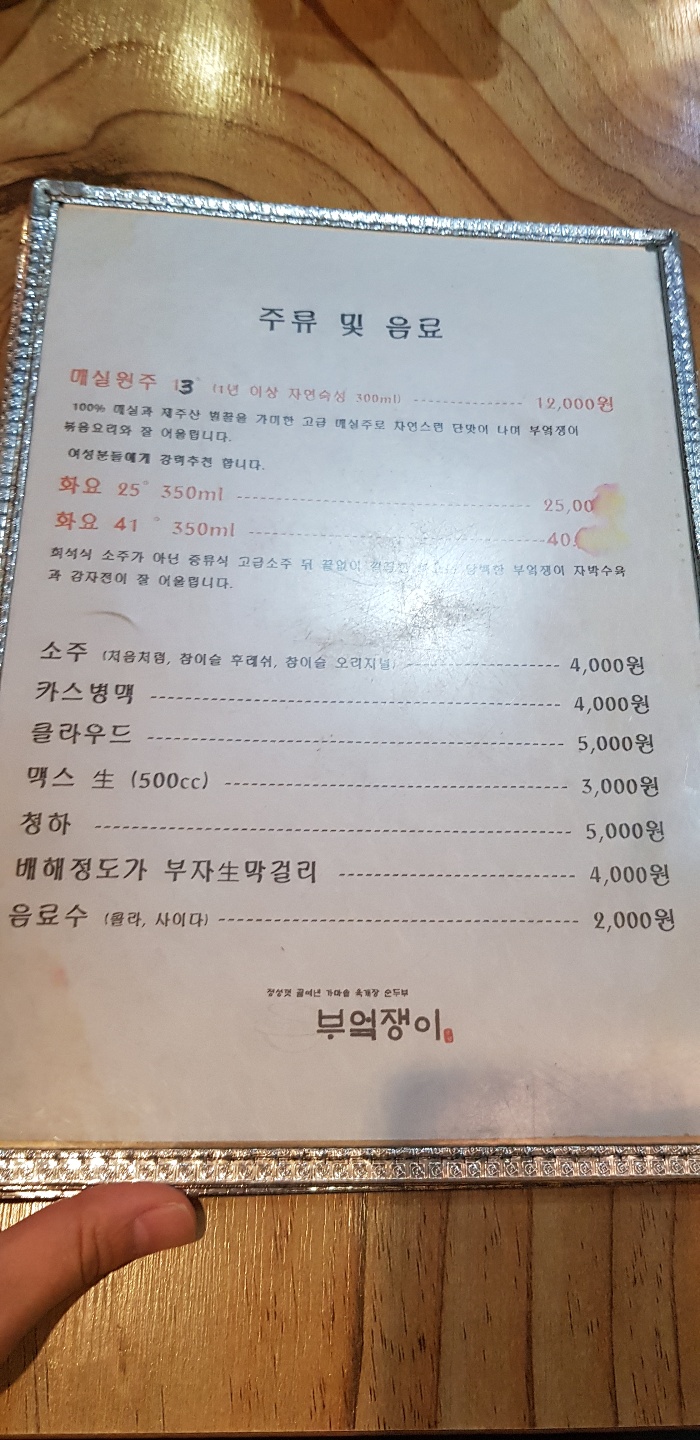 주류 및 음료
매실원주 13° (1년 이상 자연숙성 300ml) ---------------- 12,000원
100% 매실과 제주산 벌꿀을 가미한 고급 매실주로 자연스런 단맛이 나며 부엌쟁이
볶음요리와 잘 어울립니다.
여성분들에게 강력추천 합니다.
화요 25° 350ml ---------------- 25,00
화요 41 ° 350ml ---------------- 40,
희석식 소주가 아닌 증류식 고급소주 뒤 끝없이 담백한 부엌쟁이 자박수육
과 감자전이 잘 어울립니다.
소주 (처음처럼, 참이슬 후레쉬, 참이슬 오리지널) ---------------- 4,000원
카스병맥 ---------------- 4,000원
클라우드 ---------------- 5,000원
맥스 生 (500cc) ---------------- 3,000원
청하 ---------------- 5,000원
배해정도가 부자生막걸리 ---------------- 4,000원
음료수 (콜라, 사이다) ---------------- 2,000원
정성껏 끓여낸 가마솥 육개장 순두부
부엌쟁이